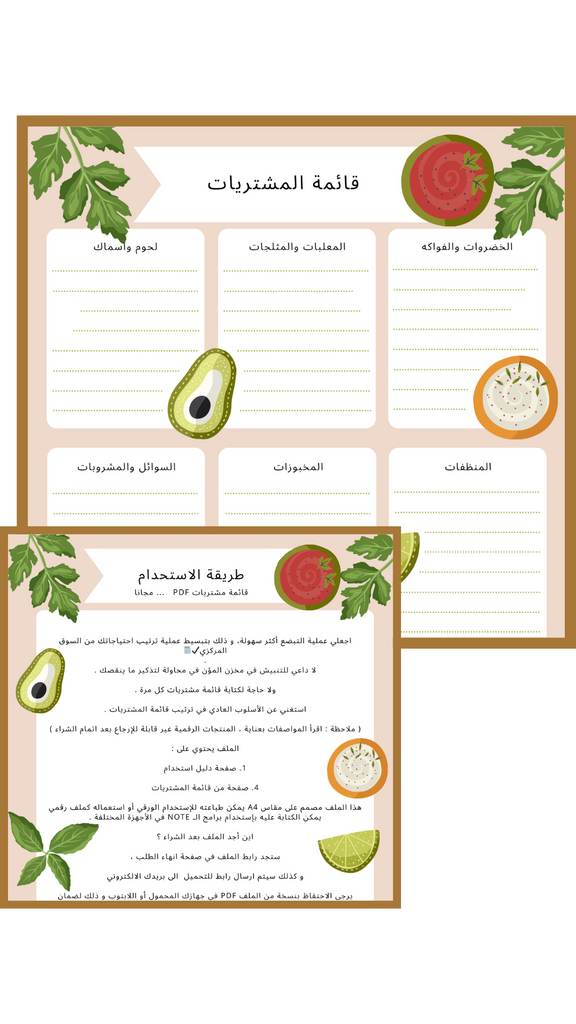 قائمة المشتريات
الخضروات والفواكه
المعلبات والمثلجات
لحوم وأسماك
المنظفات
المخبوزات
السوائل والمشروبات
طريقة الاستحدام
قائمة مشتريات PDF ... مجانا
اجعلي عملية التبضع أكثر سهولة، و ذلك بتبسيط عملية ترتيب احتياجاتك من السوق
المركزي✔🗒
.
لا داعي للتنبيش في مخزن المؤن في محاولة لتذكير ما ينقصك .
ولا حاجة لكتابة قائمة مشتريات كل مرة .
استغني عن الأسلوب العادي في ترتيب قائمة المشتريات .
( ملاحظة : اقرأ المواصفات بعناية ، المنتجات الرقمية غير قابلة للإرجاع بعد اتمام الشراء )
الملف يحتوي على :
1. صفحة دليل استخدام
4. صفحة من قائمة المشتريات
هذا الملف مصمم على مقاس A4 يمكن طباعته للإستخدام الورقي أو استعماله كملف رقمي
يمكن الكتابة عليه بإستخدام برامج الـ NOTE في الأجهزة المختلفة .
اين أجد الملف بعد الشراء ؟
ستجد رابط الملف في صفحة انهاء الطلب ،
و كذلك سيتم ارسال رابط للتحميل الى بريدك الالكتروني
يرجى الاحتفاظ بنسخة من الملف PDF في جهازك المحمول أو اللابتوب و ذلك لضمان